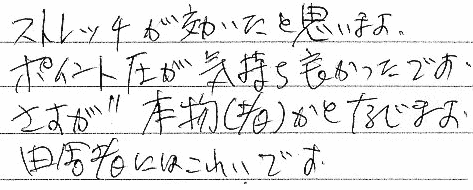 ストレッチが効いたと思います。
ポイント圧が気持ち良かったです。
さすが〃本物(者)かと存じます。
田舎者にはこれいいです